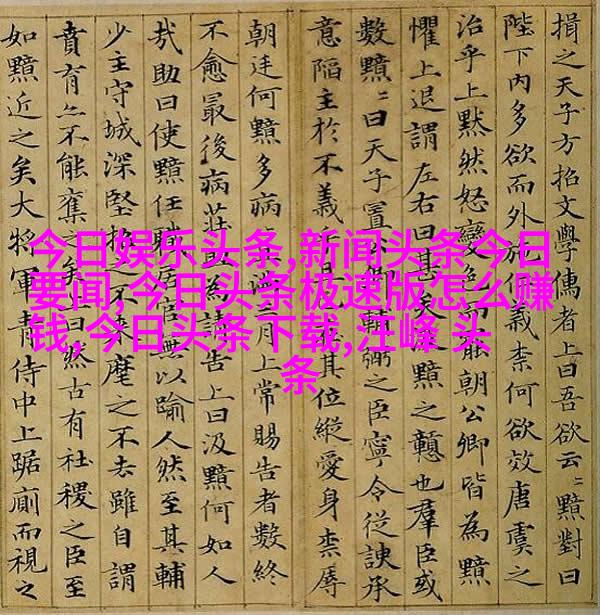 今日娱乐头条,新闻头条今日
要闻,今日头条极速版怎么赚
钱,今日头条下载,汪峰 头
条
揖之天子方招文學儒者上曰吾欲云〻黯對曰
陛下內多欲而外施仁義柰何欲效唐虞之
治乎上黙然怒變色而罷朝公卿皆為黯
懼上退謂左右曰甚矣黯之戇也羣臣或
數黯〻曰天子置公卿輔弼之臣寧令從諛承
意陷主於不義乎且其位縱愛身柰辱
朝廷何黯多病病滿三月上常賜告者數終
不愈最後病莊助為請告上曰汲黯何如人
哉助曰使黯任職居官無以踰人然至其輔
少主守城深堅招之不麾之不去雖自謂
賁育亦不能奪之矣曰然古有社稷之臣至
如黯近之矣大將軍青侍中上踞廁而視之